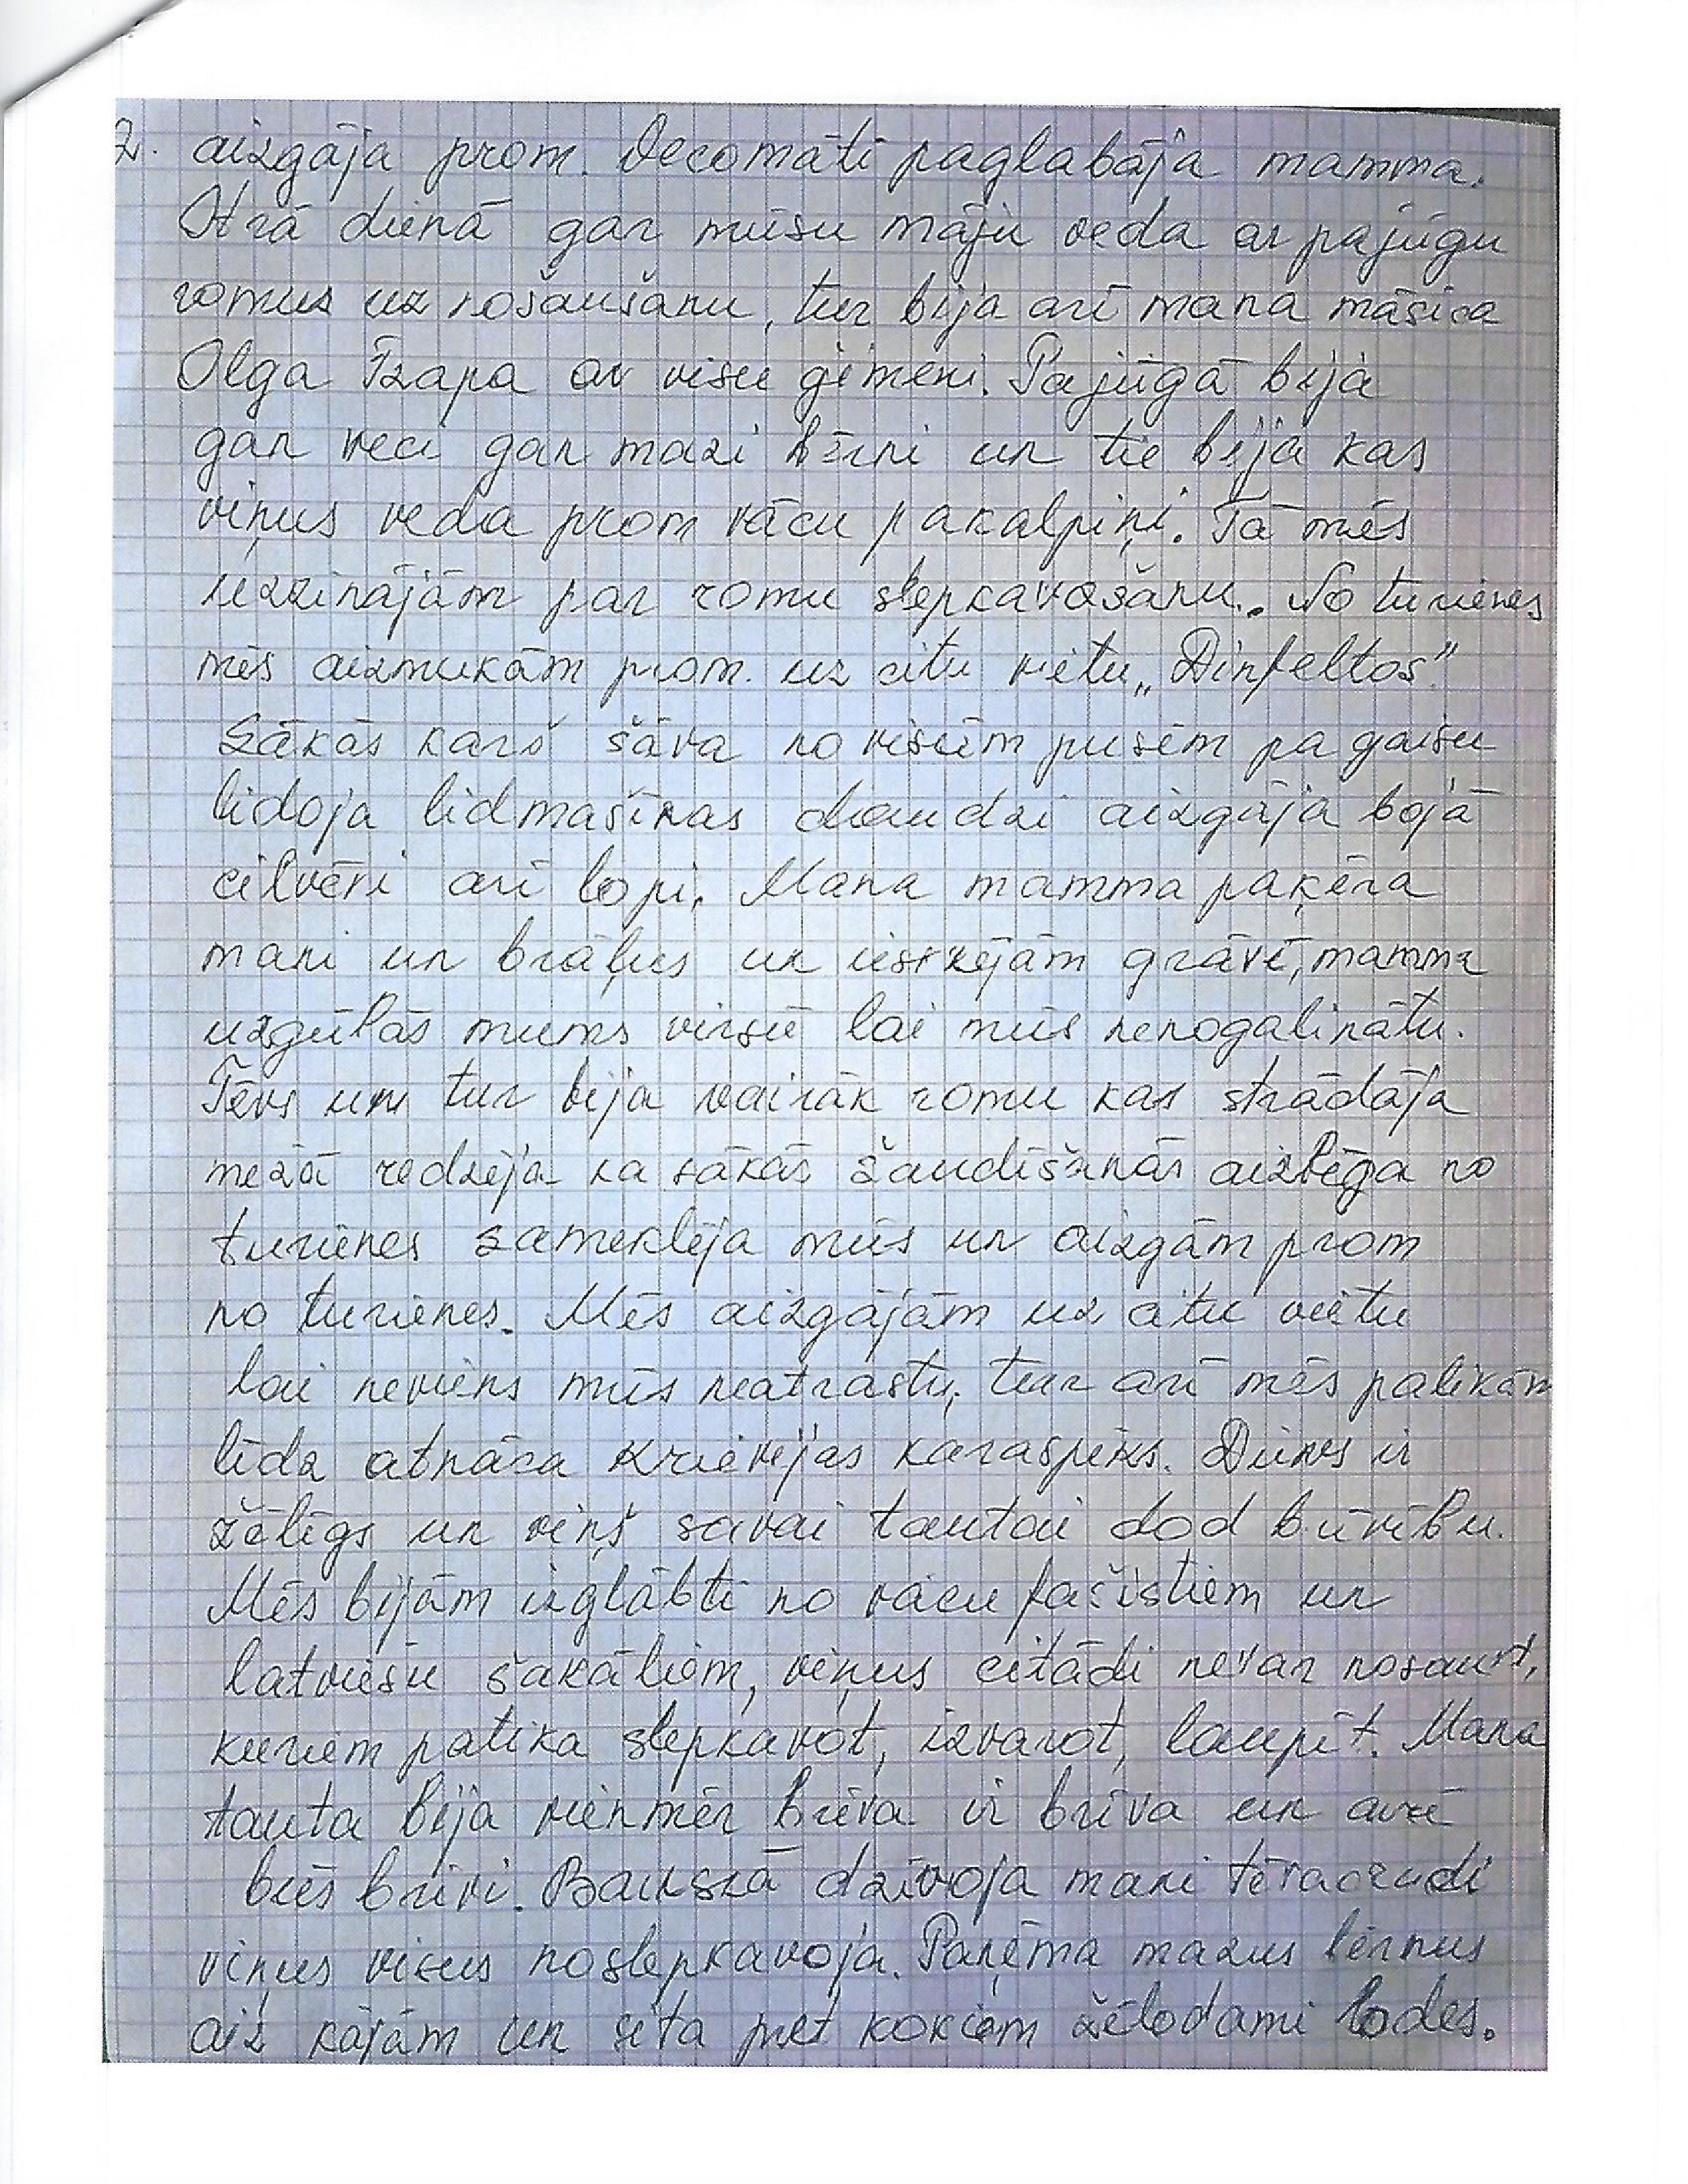 2. aizgāja prom. Vecomāti paglabāja mamma.
Otrā dienā gar mūsu māju veda ar pajūgu
romus uz nošaušanu, tur bija arī mana māsīca
Olga Tzapa ar visu ģimeni. Pajūgā bija
gan veci gan mazi bērni un tie bija kas
viņus veda prom vācu pakalpiņi. Tā mēs
uzzinājām par romu slepkavošanu. No turienes
mēs aizmukām prom. uz citu vietu „Dinfeltos"
Sākās karš šāva no visām pusēm pa gaisu
lidoja lidmašīnas daudzi aizgāja bojā
cilvēki arī lopi. Mana mamma paķēra
mani un brāļus un ieskrējām grāvī, mamma
uzgūlās mums virsū lai mūs nenogalinātu.
Tēvs un tur bija vairāk romu kas strādāja
mežā redzēja ka sākās šaudīšanās aizbēga no
turienes sameklēja mūs un aizgām prom
no turienes. Mēs aizgājām uz citu vietu
lai neviens mūs neatrastu, tur arī mēs palikām
līdz atnāca Krievijas karaspēks. Dievs ir
žēlīgs un viņš savai tautai dod brīvību.
Mēs bijām izglābti no vācu fašistiem un
latviešu šakāļiem, viņus citādi nevar nosaukt,
kuriem patika slepkavot, izvarot, laupīt. Mana
tauta bija vienmēr brīva ir brīva un arī
būs brīvi. Bauskā dzīvoja mani tēva radi
viņus visus noslepkavoja. Paņēma mazus bērnus
aiz kājām un sita pret kokiem žēlodami lodes.